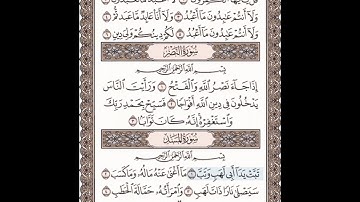 وَلَآ أَنتُمْ عَٰبِدُونَ مَآ أَعْبُدُ ٣ وَلَآ أَنَا۠ عَابِدٌ مَّا عَبَدتُّمْ ٤
وَلَآ أَنتُمْ عَٰبِدُونَ مَآ أَعْبُدُ ٥ لَكُمْ دِينُكُمْ وَلِىَ دِينِ ٦
سُورَةُ النَّصْرِ
بِسْمِ ٱللَّهِ ٱلرَّحْمَٰنِ ٱلرَّحِيمِ
إِذَا جَآءَ نَصْرُ ٱللَّهِ وَٱلْفَتْحُ ١ وَرَأَيْتَ ٱلنَّاسَ
يَدْخُلُونَ فِى دِينِ ٱللَّهِ أَفْوَاجًا ٢ فَسَبِّحْ بِحَمْدِ رَبِّكَ
وَٱسْتَغْفِرْهُ إِنَّهُۥ كَانَ تَوَّابًۢا ٣
سُورَةُ المَسَدِ
بِسْمِ ٱللَّهِ ٱلرَّحْمَٰنِ ٱلرَّحِيمِ
تَبَّتْ يَدَآ أَبِى لَهَبٍ وَتَبَّ ١ مَآ أَغْنَىٰ عَنْهُ مَالُهُۥ وَمَا كَسَبَ ٢
سَيَصْلَىٰ نَارًا ذَاتَ لَهَبٍ ٣ وَٱمْرَأَتُهُۥ حَمَّالَةَ ٱلْحَطَبِ ٤